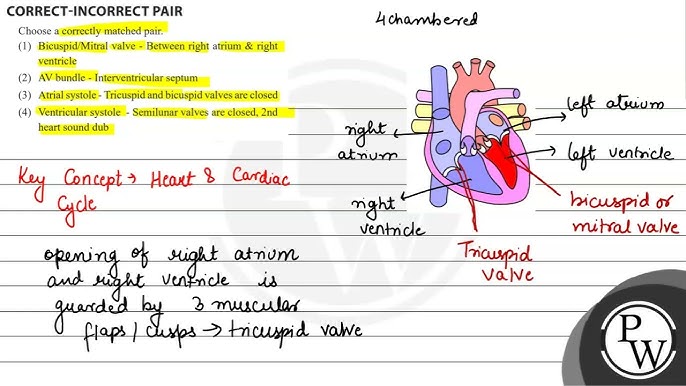 CORRECT-INCORRECT PAIR
Choose a correctly matched pair.
(1) Bicuspid/Mitral valve - Between right atrium & right
ventricle
(2) AV bundle - Interventricular septum
(3) Atrial systole - Tricuspid and bicuspid valves are closed
(4) Ventricular systole - Semilunar valves are closed, 2nd
heart sound dub
4 chambered
left atrium
right
atrium
left ventricle
right
ventricle
bicuspid or
mitral valve
Tricuspid
valve
Key Concept → Heart & Cardiac
Cycle
opening of right atrium
and right ventricle is
guarded by 3 muscular
flaps / cusps → tricuspid valve
P
W